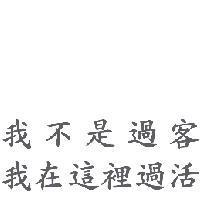 我不是過客
我在這裡過活